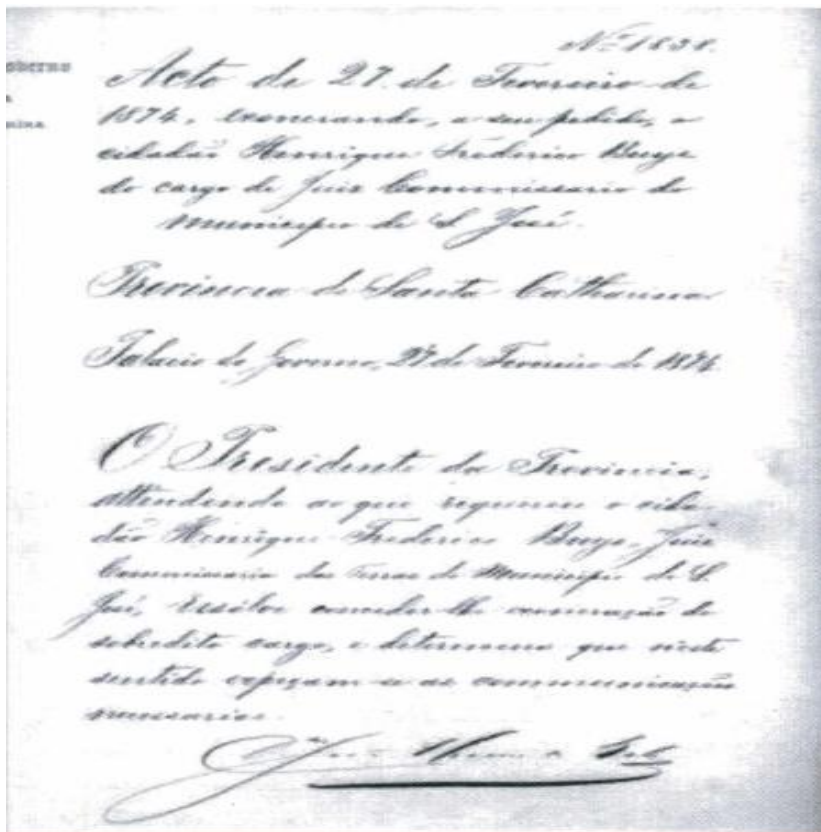 Nº 1838.
Acto de 27 de Fevereiro de
1874, exonerando, a seu pedido, o
cidadão Henrique Frederico
do cargo de Juiz Commissario do
Municipio de S. José.
Provincia de Santa Catharina
Palacio do Governo, 27 de Fevereiro de 1874.
O Presidente da Provincia,
attendendo ao que requereu o cida-
dão Henrique Frederico Juiz
Commissario das terras do Municipio de S.
José, resolve conceder-lhe exoneração do
sobredito cargo, e determina que neste
sentido expeçam-se as communicações
necessarias.